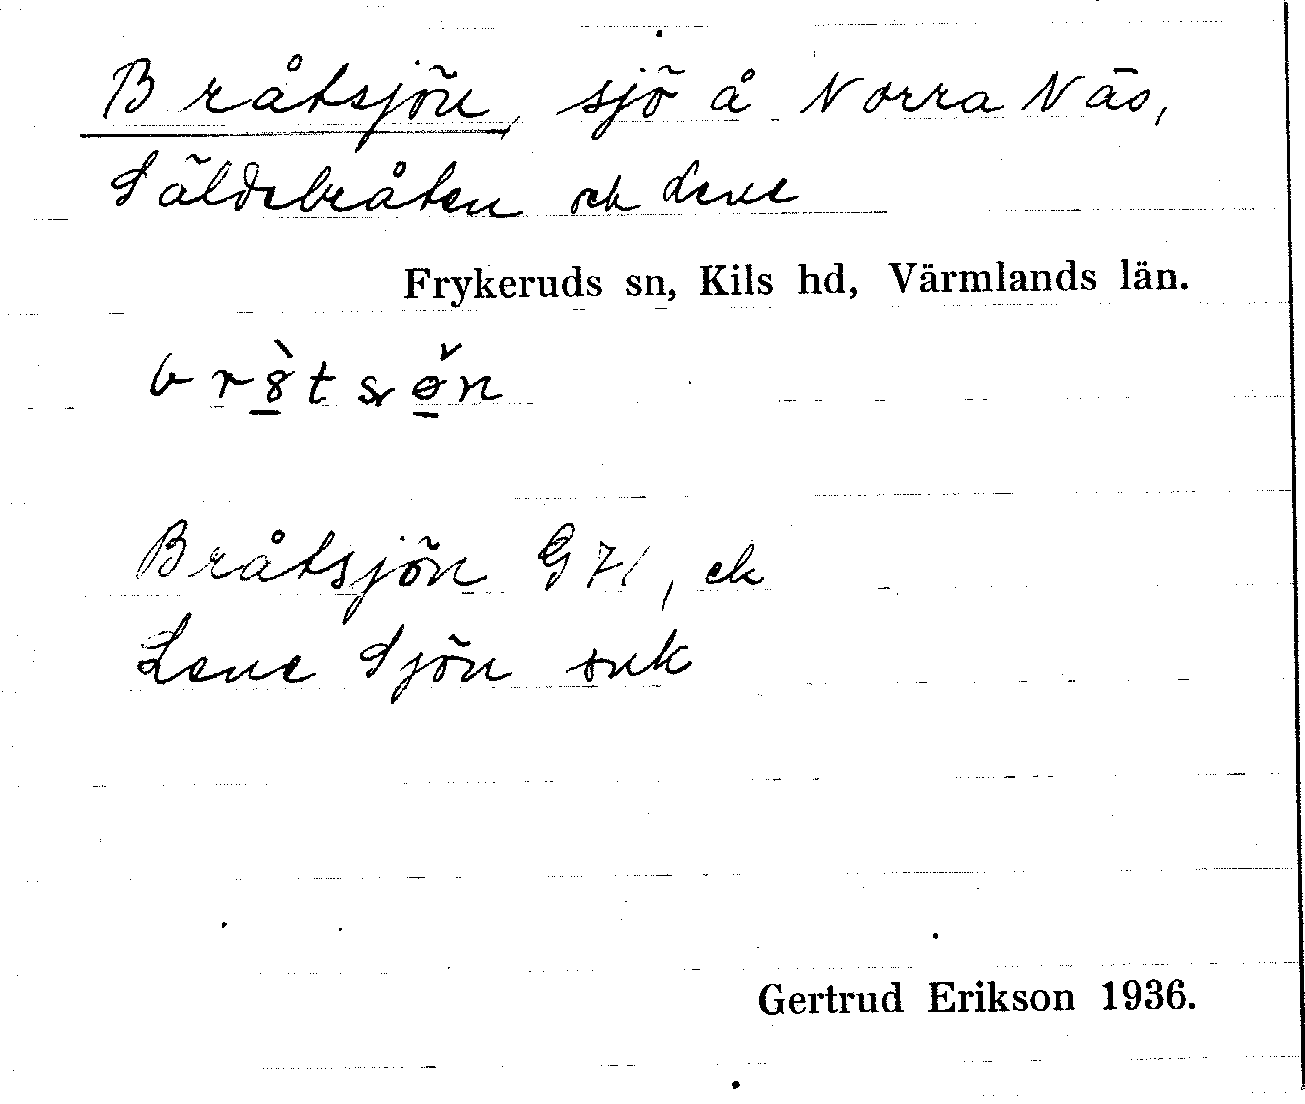 Bråtsjön, sjö å Norra Näs,
Säldebråten och Lene
Frykeruds sn, Kils hd, Värmlands län.
Bråtsjön G 71, ek
Lene Sjön
Gertrud Erikson 1936.